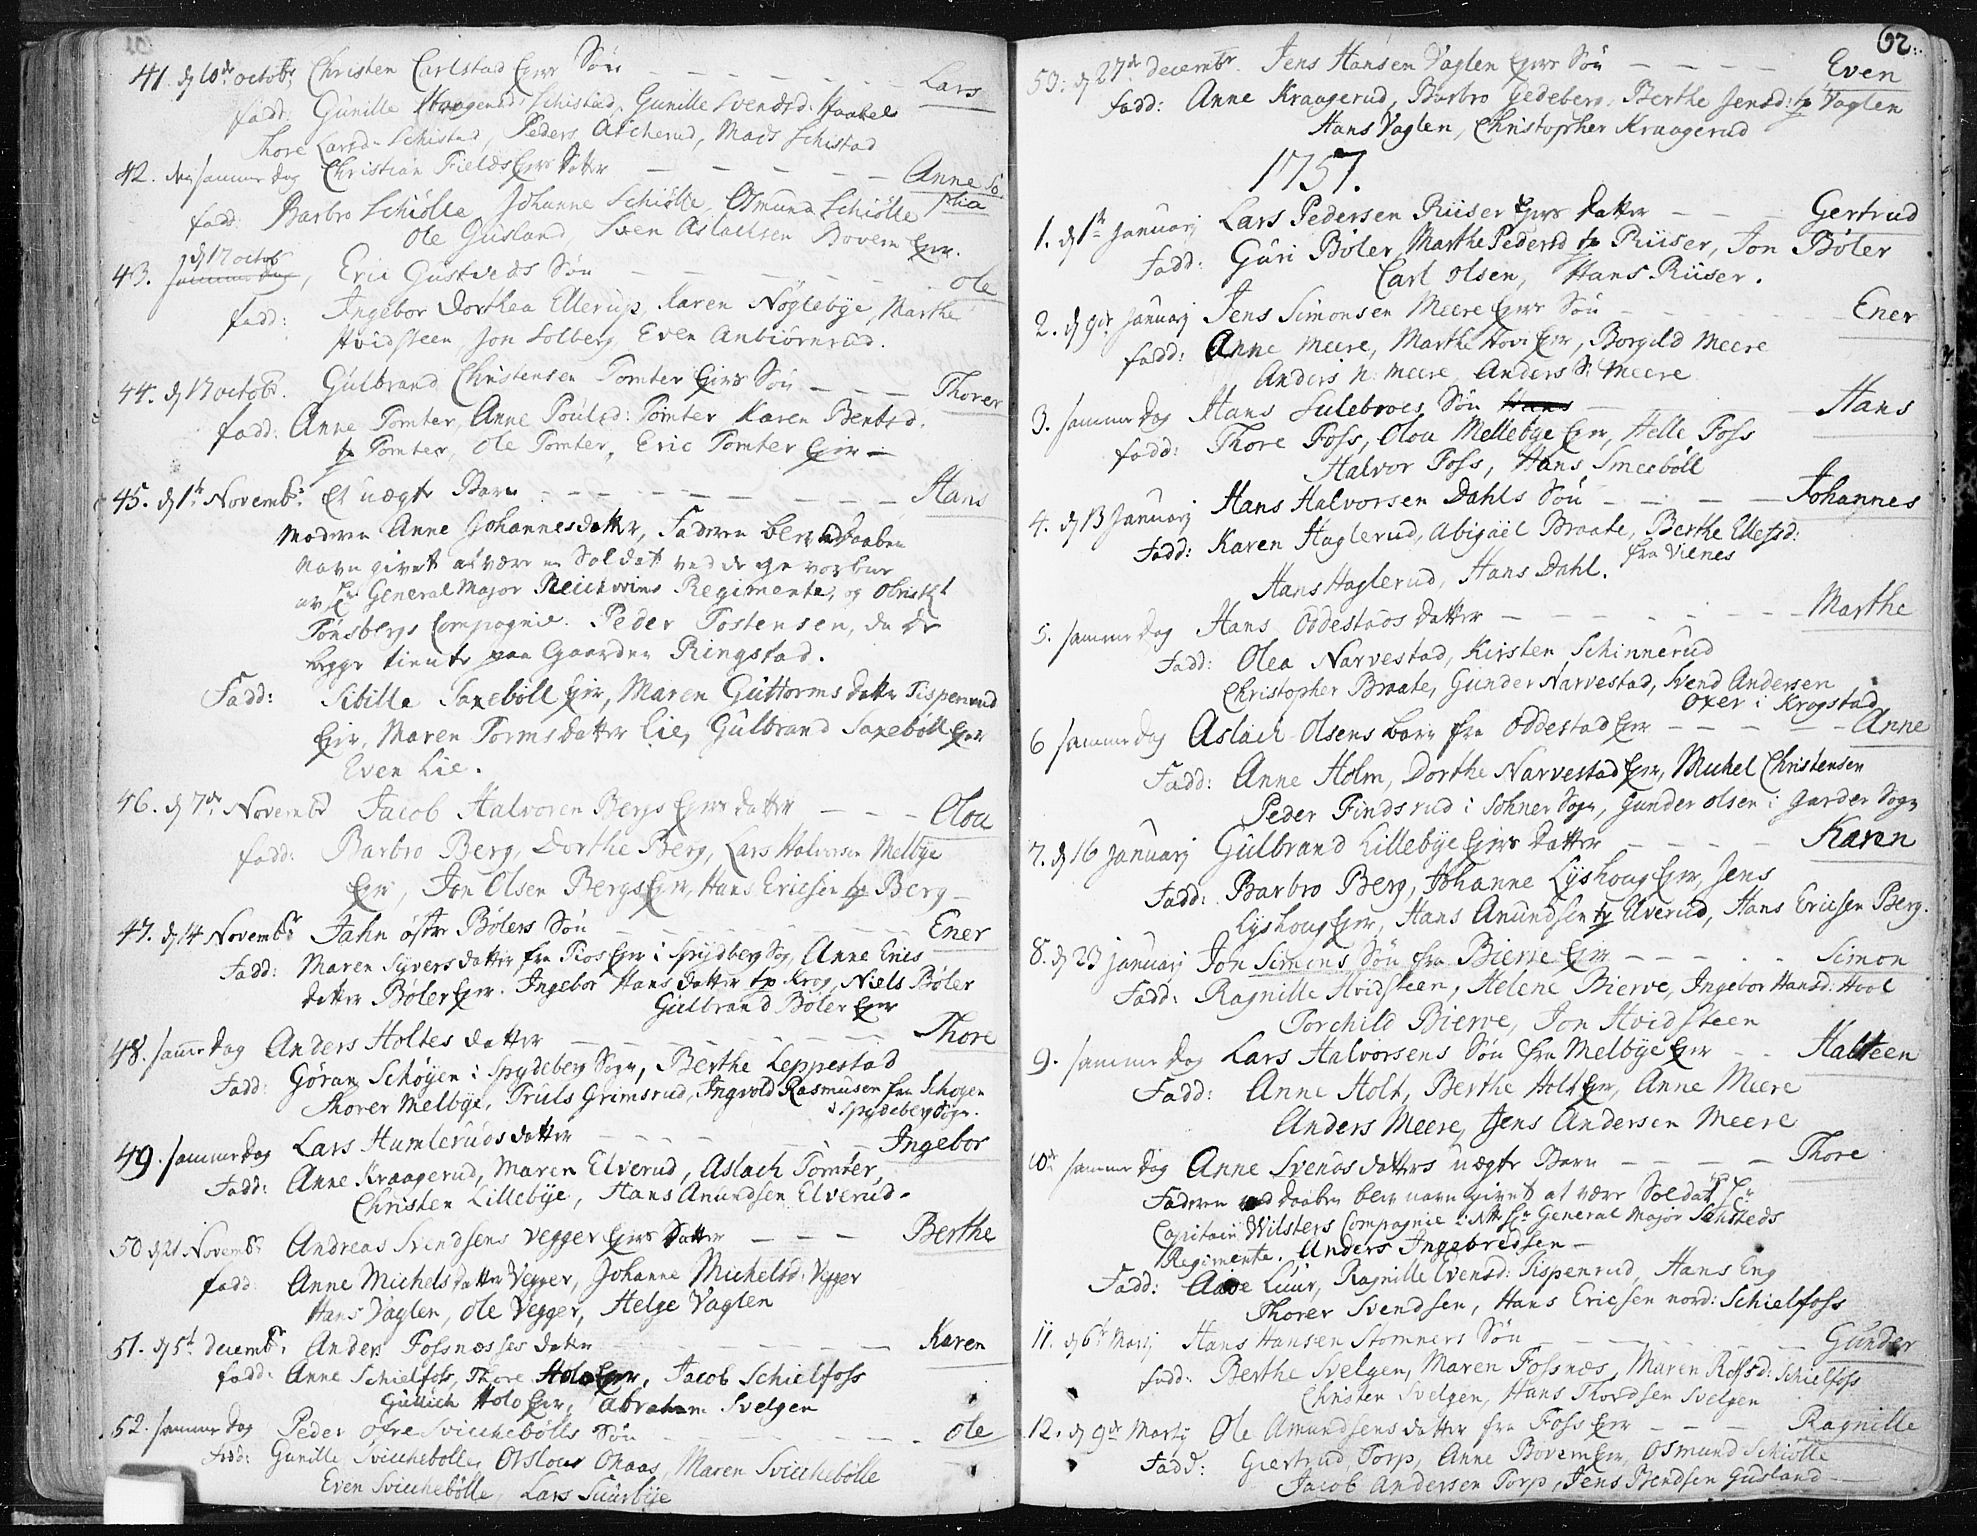 41. d 10de octobr Christen Carlstad Eyers Søn - - - - Lars
fadd: Gunille Haagensd: Schistad, Gunille Svendsd. Haabel
Thore Larsd. Schistad, Peder Ascherud, Mads Schistad
42. den samme dag Christian Fields Eyers Datter - - - - Anne So
phia
fadd: Barbro Schiølle, Johanne Schiølle, Osmund Schiølle
Ole Gusland, Sven Aslachsen Bovem Eyer.
d 17 octob
43. samme dag, Eric Gustveds Søn - - - - Ole
fadd: Ingebor Dorthea Ellerup, Karen Nøglebye, Marthe
Hvidsteen, Jon Solberg, Even Anbiørnrud.
44. d 17 octobr. Gulbrand Christensen Tomter Eyers Søn - - - Thorer
fadd: Anne Tomter, Anne Poulsd: Tomter Karen Bentsd.
fra Tomter, Ole Tomter, Eric Tomter Eyer -
45. d 1te Novembr: Et uægte Barn - - - - Hans
Moderen Anne Johannesdatter, Faderen blev ved daaben
Navn givet at være en Soldat ved de
av Hr General Major Reichweins Regimente, og Obristlt
Tønsbergs Compagnie. Peder Tostensen, da de
begge tiente paa Gaarden Ringstad.
Fadd: Sibille Saxebøll Eyer, Maren Guttormsdatter Tispenrud
Eyer, Maren Tormsdatter Lie, Gulbrand Saxebøll Eyer
Even Lie.
46. d 7de Novembr Jacob Halvorsen Bergs Eyers datter - - - Oloa
fadd: Barbro Berg, Dorthe Berg, Lars Halvorsen Melbye
Eyer, Jon Olsen Bergs Eyer, Hans Ericsen fra Berg -
47. d 14 Novembr Jahn østre Bølers Søn - - - - Ener
Fadd: Maren Syversdatter fra Tios Eyer i Spydberg Sogn, Anne Erics
datter Bøler Eyer. Ingebor Hansdatter fra Krog, Niels Bøler
Gulbrand Bøler Eyer
48. samme dag Anders Holtes datter - - - - Thore
Fadd: Gøran Schøyen i Spydeberg Sogn, Berthe Leppestad
Thorer Melbye, Truls Grimsrud, Ingvold Rasmusen fra Schøyen
i Spydeberg Sogn.
49. samme dag Lars Humleruds datter - - - - Ingebor
Fadd: Anne Kraagerud, Maren Elverud, Aslach Tomter,
Christen Lillebye, Hans Anundsen Elverud.
50 d 21 Novembr Andreas Svendsens Vegger Eyers Datter - - - Berthe
fadd: Anne Michelsdatter Vegger, Johanne Michelsd: Vegger
Hans Vaglen, Ole Vegger, Helge Vaglen
51. d 5t decembr: Anders Fossnæsses datter - - - - Karen
fadd: Anne Schielfoss, Thore Holo Eyer, Jacob Schielfoss
Gullich Holo Eyer, Abraham Svelgen
52. samme dag Peder øfre Svicchebølls Søn - - - - Ole
Fadd: Gunille Svicchebølle, Oloua Ohaas, Maren Svicchebølle
Even Svicchebølle, Lars Suurbye
62.
53: d 27de decembr. Jens Hansen Vaglen Eyers Søn - - - - Even
fadd: Anne Kraagerud, Barbro Gedeberg, Berthe Jensd: fra Vaglen
Hans Vaglen, Christopher Kraagerud
1757.
1. d 1te Januarj Lars Pedersen Riiser Eyers datter - - - Gertrud
Fadd: Guri Bøler, Marthe Pedersd fra Riiser, Jon Bøler
Carl Olsen, Hans Riiser.
2. d 9de Januarj Jens Simonsen Meere Eyers Søn - - - - Ener
fadd: Anne Meere, Marthe Hovi Eyer, Borgild Meere
Anders N: Meere, Anders S: Meere
3. samme dag Hans Sulebroes Søn - - - - Hans
fadd: Thore Foss, Oloa Mellebye Eyer, Helle Foss
Halvor Foss, Hans Smeebøll
4. d 13 Januarj Hans Halvorsen Dahls Søn - - - - Johannes
Fadd: Karen Haglerud, Abigaël Braate, Berthe Ellefsd:
fra Vienes
Hans Haglerud, Hans Dahl.
5. samme dag Hans Oddestads datter - - - - Marthe
Fadd: Olea Narvestad, Kirsten Schinnerud
Christopher Braate, Gunder Narvestad, Svend Andersen
Oxer i Krogstad
6 samme dag Aslach Olsens barn fra Oddestad Eyer - - - - Anne
Fadd: Anne Holm, Dorthe Narvestad Eyer, Michel Christensen
Peder Findsrud i Sohner Sogn, Gunder Olsen i Garder Sogn
7. d 16 Januarj Gulbrand Lillebye Eyers Datter - - - - Karen
Fadd: Barbro Berg, Johanne Lyshoug Eyer, Jens
Lyshoug Eyer, Hans Anundsen fra Elverud, Hans Ericsen Berg.
8. d 23 Januarj Jon Simens Søn fra Bierje Eyer - - - - Simon
Fadd: Ragnille Hvidsteen, Helene Bierve, Ingebor Hansd: Hvol
Torchild Bierve, Jon Hvidsteen
9. samme dag Lars Halvorsens Søn fra Melbye Eyer - - Halsteen
Fadd: Anne Holt, Berthe Holt Eyer, Anne Meere
Anders Meere, Jens Andersen Meere
10de samme dag Anne Svendsdatters uægte Barn - - - - Thore
Faderen ved Daaben blev navn givet at være Soldat
Capitain Wilsters Compagnie i General Major
Regimente. Anders Ingebredsen -
Fadd: Anne Luur, Ragnille Evensd: Tispenrud, Hans Eng
Thorer Svendsen, Hans Ericsen nord: Schielfoss
11. d 6te Martj Hans Hansen Stomners Søn - - - - Gunder
fadd: Berthe Svelgen, Maren Fossnæs, Maren Rolfsd: Schielfoss
Christen Svelgen, Hans Thordsen Svelgen
12. d 9de Martj Ole Amundsens datter fra Foss Eyer - - - Ragnille
Fadd: Giertrud Torp, Anne Bovem Eyer, Osmund Schiølle
Jacob Andersen Torp, Jens Bendsen Gusland